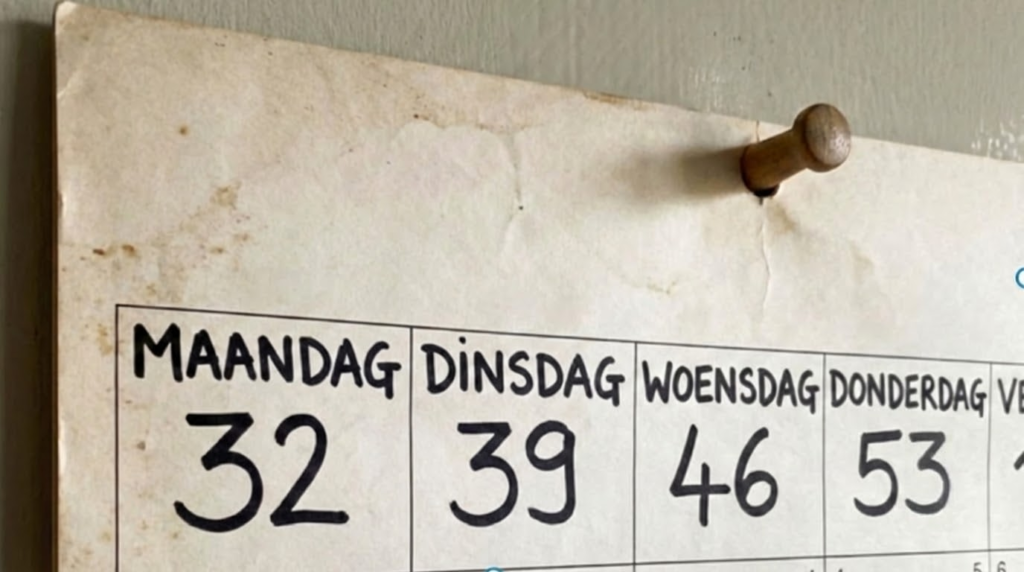 MAANDAG DINSDAG WOENSDAG DONDERDAG
32 39 46 53
5 6